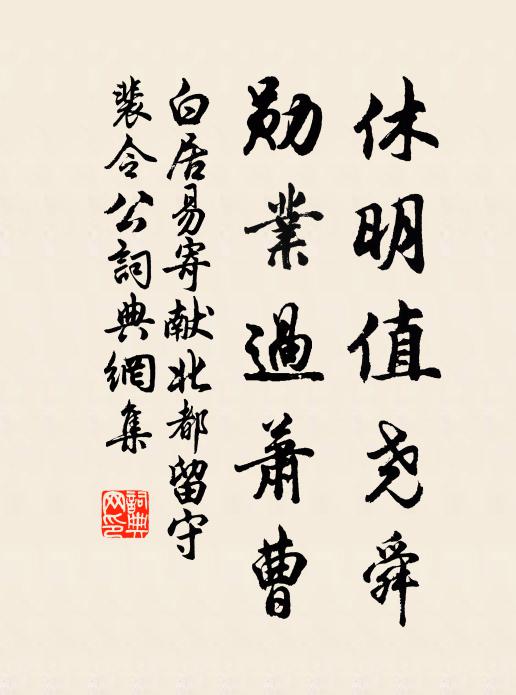 休明值尧舜
勋業過萧曹
白居易寄献北都留守
裴令公詞典網集
詞典网印